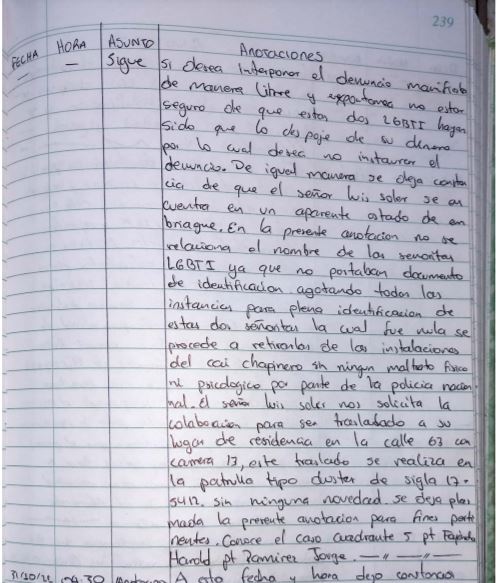 239
FECHA HORA ASUNTO Anotaciones
— — Sigue si desea Interponer el denuncio manifiesta
de manera libre y expontanea no estar
seguro de que estas dos LGBTI hayan
sido que lo despoje de su dinero
por lo cual desea no instaurar el
denuncio. De igual manera se deja constan
cia de que el señor luis soler se en
cuentra en un aparente estado de em
briague. En la presente anotacion no se
relaciona el nombre de las senoritas
LGBTI ya que no portaban documento
de identificacion agotando todas las
instancias para plena identificacion de
estas dos señoritas la cual fue nula se
procede a retirarlas de las instalaciones
del cai chapinero sin ningun maltrato fisico
ni psicologico por parte de la policia nacion
nal. el señor luis soler nos solicita la
colaboracion para ser trasladado a su
lugar de residencia en la calle 63 con
carrera 13, este traslado se realiza en
la patrulla tipo duster de sigla 17-
5412. sin ninguna novedad. se deja plas
mada la presente anotacion para fines perti
nentes. Conoce el caso cuadrante 5 pt
Harold pt Ramirez Jorge. — // — // —
09:30 A esta fecha y hora dejo constancia